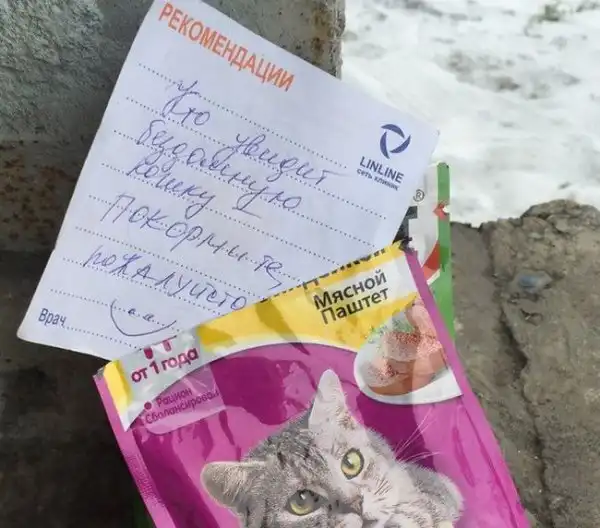 РЕКОМЕНДАЦИИ
кто увидит
бездомную
кошку –
Покормите,
пожалуйста
LINLINE
сеть клиник
Врач
®
Мясной
Паштет
от 1 года
• Рацион
Сбалансирован